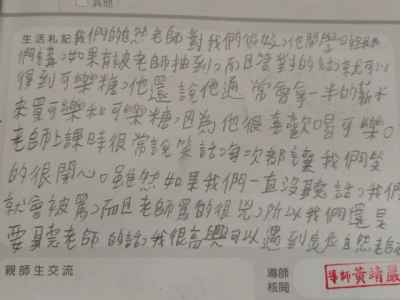 其他
生活札記 我們的自然老師對我們很好,他開學 就跟我
們講,如果有被老師抽到,而且答對的話,就可以
得到可樂糖,他還說他通 常會拿一半的薪水
來買可樂和可樂糖,因為他很喜歡喝可樂。
老師上課時很常說笑話,每次都讓我們笑
的很開心。雖然如果我們一直沒聽話,我們
就會被罵,而且老師罵的很兇,所以我們還是
要聽老師的話,我很高興可以遇到 自然老
親師生交流
導師
核閱
導師黃靖嚴